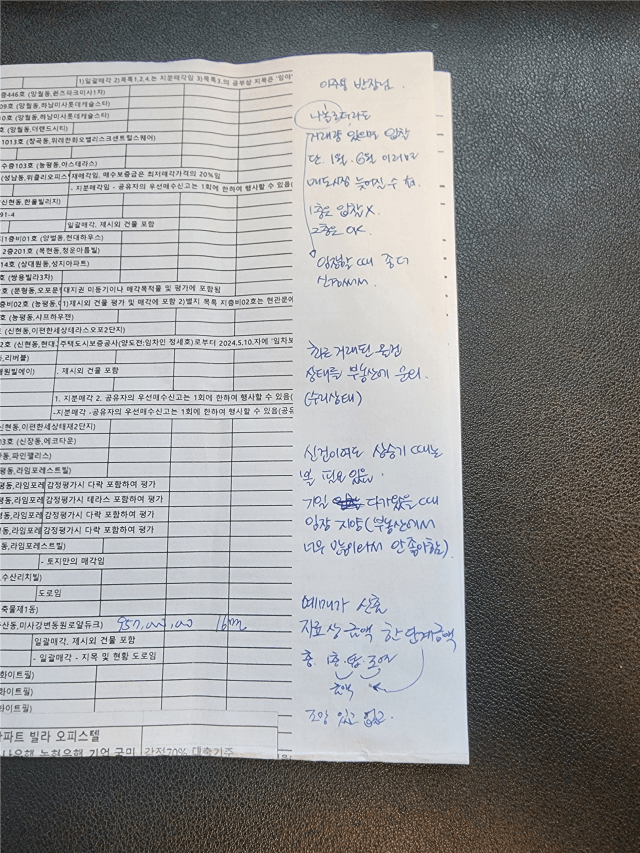 1)일괄매각 2)목록1,2,4.는 지분매각임 3)목록3.의 공부상 지목은 '임야
층446호 (망월동,퀸즈파크미사1차)
09호 (망월동,하남미사롯데캐슬스타)
0호 (망월동,하남미사롯데캐슬스타)
호 (망월동,더랜드시티)
1013호 (창곡동,위례한화오벨리스크센트럴스퀘어)
수층103호 (능평동,아스테라스)
(성남동,위클리오피스 재매각임, 매수보증금은 최저매각가격의 20%임
- 지분매각임 - 공유자의 우선매수신고는 1회에 한하여 행사할 수 있음(
신현동,한울빌리지)
91-4
일괄매각, 제시외 건물 포함
지1층비01호 (양벌동,현대하우스)
2층201호 (목현동,청운아름빌)
14호 (상대원동,성지아파트)
호 (쌍용빌라3차)
호 (문형동,오포문 대지권 미등기이나 매각목적물 및 평가에 포함됨
층비02호 (능평동, 1)제시외 건물 평가 및 매각에 포함 2)별지 목록 지층비02호는 현관문에
호 (능평동,샤프하우젠)
(신현동,이편한세상테라스오포2단지)
2호 (신현동,현대 주택도시보증공사(양도전:임차인 정세호)로부터 2024.5.10.자에 '임차보
,리버블)
해원빌에이) . 제시외 건물 포함
1. 지분매각 2. 공유자의 우선매수신고는 1회에 한하여 행사할 수 있음(
-지분매각 -공유자의 우선매수신고는 1회에 한하여 행사할 수 있음(공유
신현동,이편한세상태제2단지)
03호 (신장동,에코타운)
동,파인팰리스)
평동,라임포레스트빌)
동,라임포레 감정평가시 다락 포함하여 평가
동,라임포레 감정평가시 테라스 포함하여 평가
동,라임포레 감정평가시 다락 포함하여 평가
동,라임포레 감정평가시 다락 포함하여 평가
동,라임포레스트빌)
- 토지만의 매각임
,수산리치빌)
도로임
축물제1동)
산동,미사강변동원로얄듀크) 957,000,000
일괄매각, 제시외 건물 포함
- 일괄매각 - 지목 및 현황 도로임
화이트릴)
화이트릴)
화이트릴)
아파트 빌라 오피스텔
나은행 농협은행 기업 국민 감정70% 대출기준
이주용 반장님.
나홀로더라도
거래량 있으면 입찰
단. 1월. 6월 이러면
매도시장 늦어질 수 있.
1층은 입찰X.
2층은 OK.
입찰할 때 좀 더
최근 거래된 물건
상태를 부동산에 문의.
(수리상태)
신건이어도 상승기 때는
볼 필요 있음.
기일 다가왔을 때
임장 지양(부동산에서
너무 많이와서 안 좋아함).
예매가 산출
자료상 금액 한단계금액
층 1층·탑 조망
금액
조망 있고 없고.